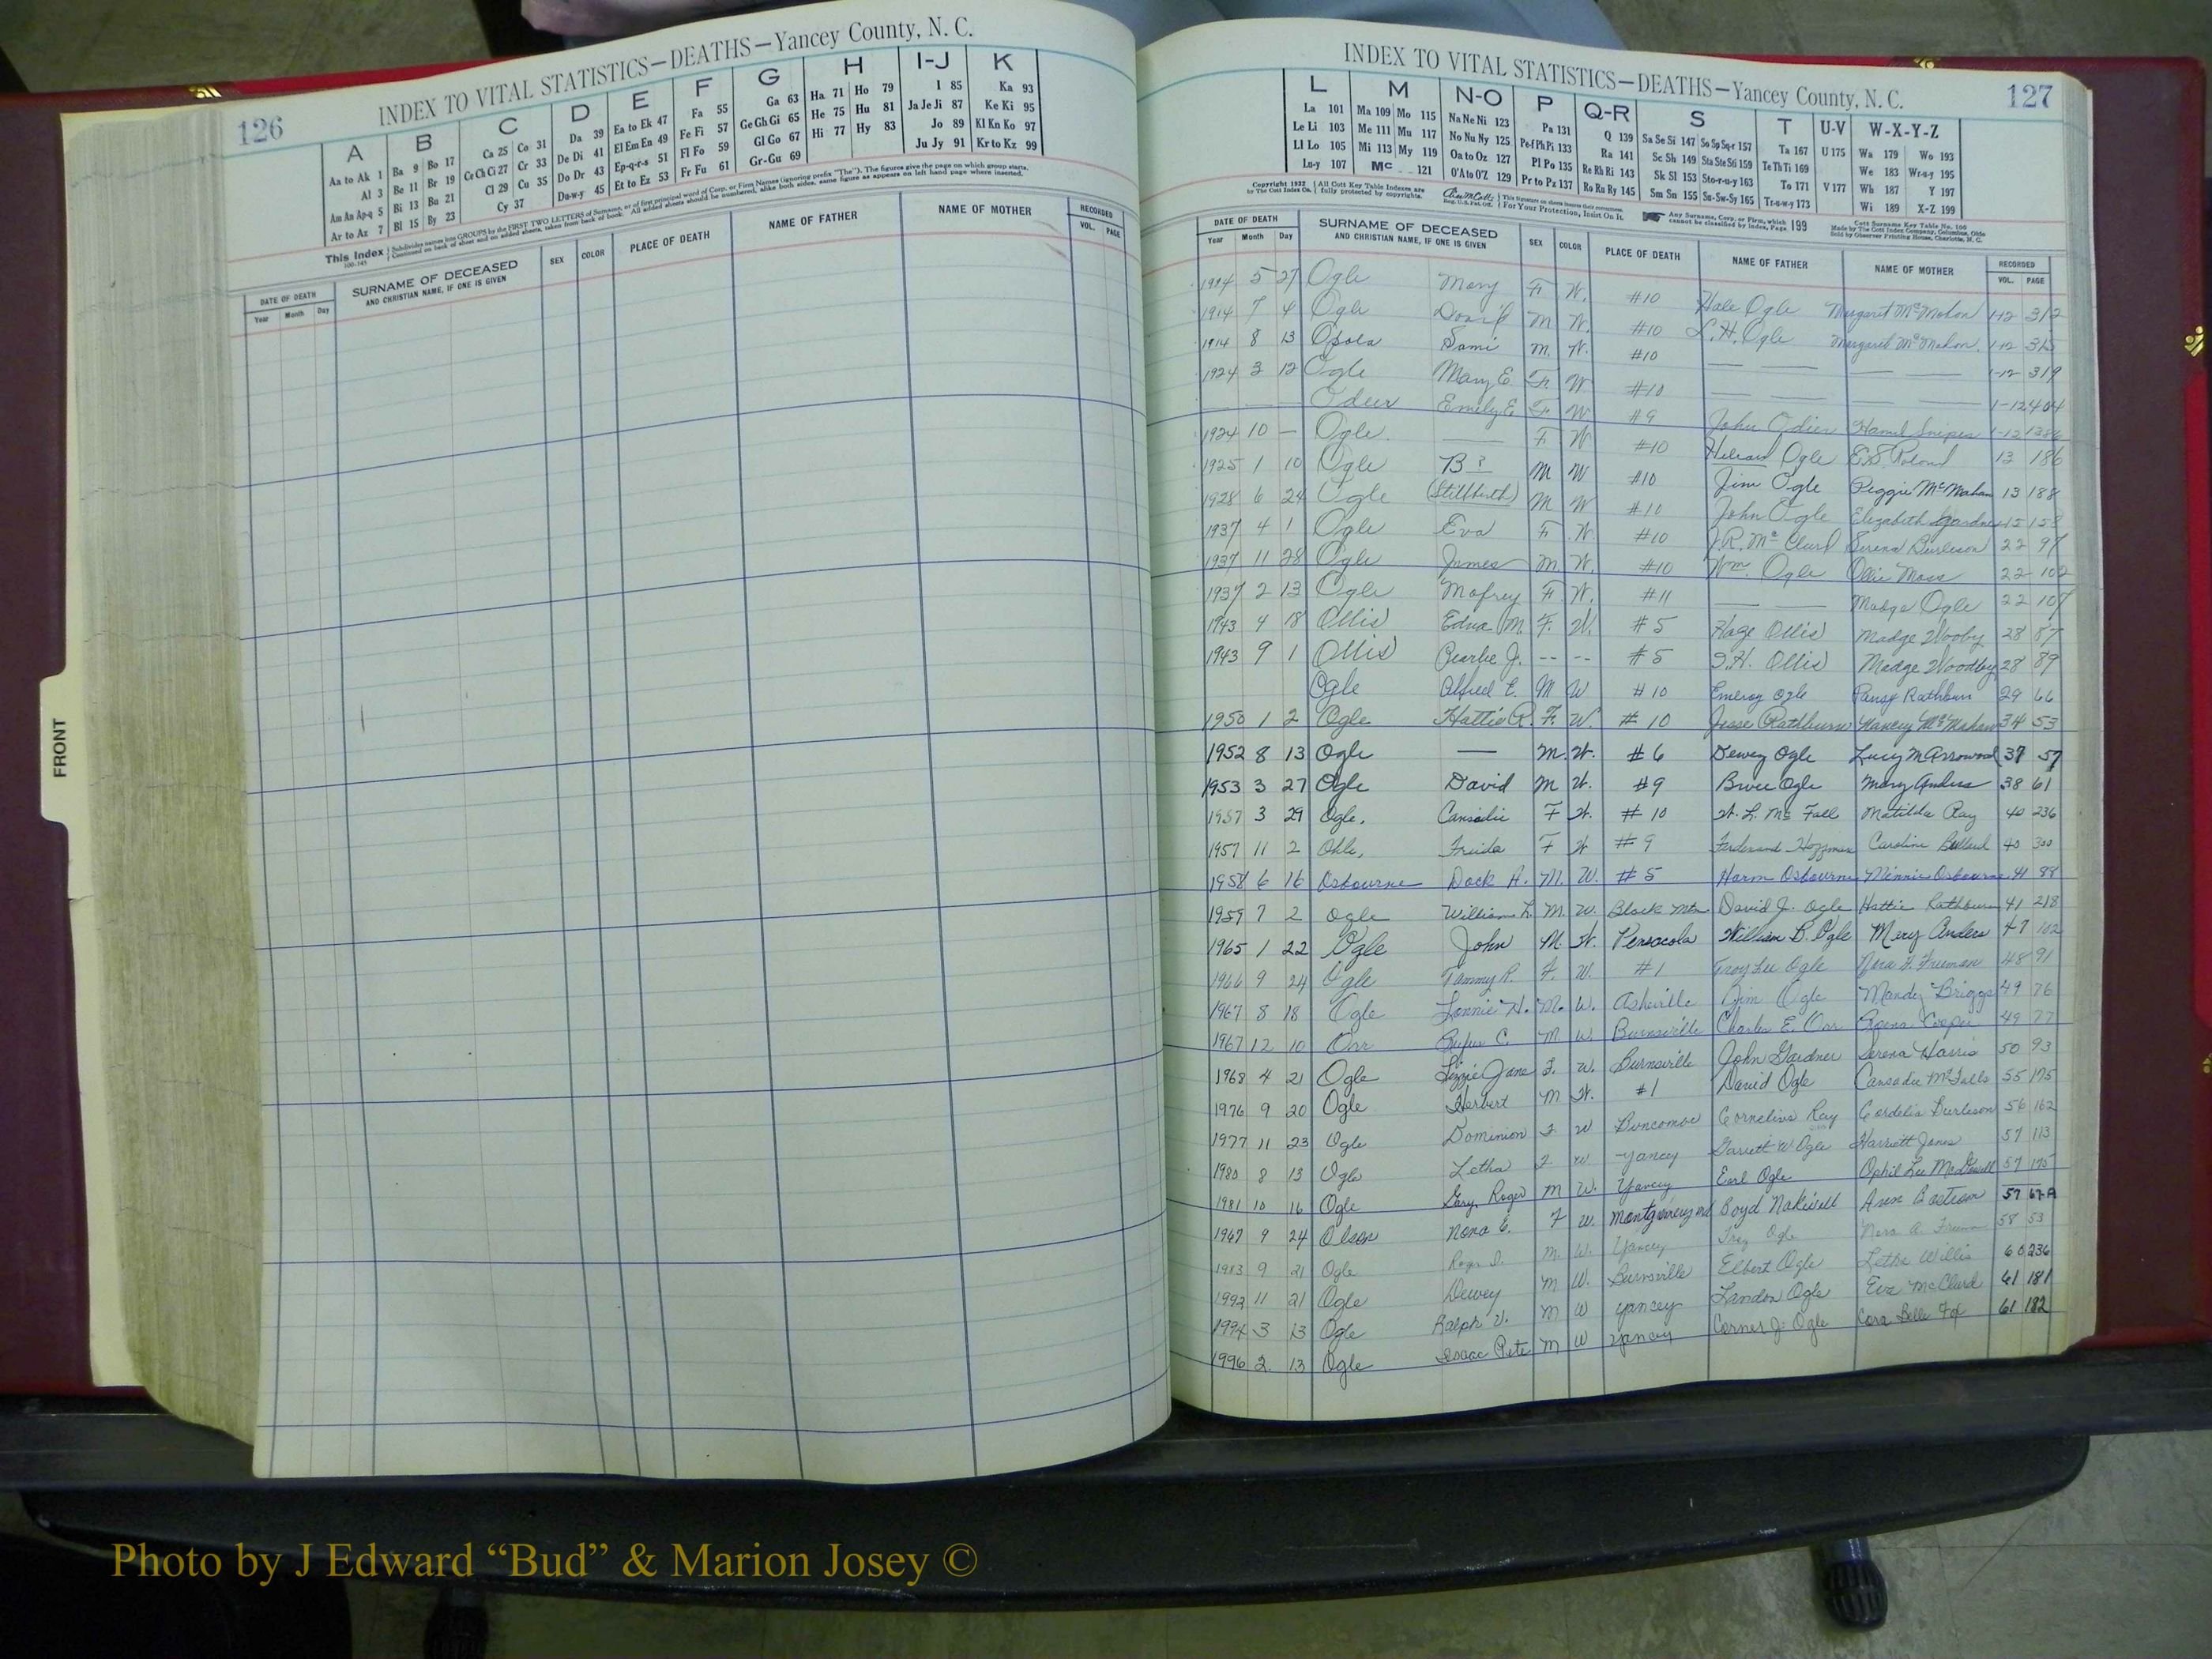 INDEX TO VITAL STATISTICS—DEATHS—Yancey County, N. C.
126
A B C D E F G H I-J K
Aa to Ak 1 Ba 9 Bo 17 Ca 25 Co 31 Da 39 Ea to Ek 47 Fa 55 Ga 63 Ha 71 Ho 79 I 85 Ka 93
Al 3 Be 11 Br 19 Ce Ch Ci 27 Cr 33 De Di 41 El Em En 49 Fe Fi 57 Ge Gh Gi 65 He 75 Hu 81 Ja Je Ji 87 Ke Ki 95
Am An Ap-q 5 Bi 13 Bu 21 Cl 29 Cu 35 Do Dr 43 Ep-q-r-s 51 Fl Fo 59 Gl Go 67 Hi 77 Hy 83 Jo 89 Kl Kn Ko 97
Ar to Az 7 Bl 15 By 23 Cy 37 Du-w-y 45 Et to Ez 53 Fr Fu 61 Gr-Gu 69 Ju Jy 91 Kr to Kz 99
This Index
DATE OF DEATH SURNAME OF DECEASED SEX COLOR PLACE OF DEATH NAME OF FATHER NAME OF MOTHER RECORDED
Year Month Day AND CHRISTIAN NAME, IF ONE IS GIVEN VOL. PAGE
FRONT
INDEX TO VITAL STATISTICS—DEATHS—Yancey County, N. C.
127
L M N-O P Q-R S T U-V W-X-Y-Z
La 101 Ma 109 Mo 115 Na Ne Ni 123 Pa 131 Q 139 Sa Se Si 147 So Sp Sq-r 157 Ta 167 U 175 Wa 179 Wo 193
Le Li 103 Me 111 Mu 117 No Nu Ny 125 Pe-f Ph Pi 133 Ra 141 Sc Sh 149 Sta Ste Sti 159 Te Th Ti 169 We 183 Wr-u-y 195
Ll Lo 105 Mi 113 My 119 Oa to Oz 127 Pl Po 135 Re Rh Ri 143 Sk Sl 153 Sto-r-u-y 163 To 171 V 177 Wh 187 Y 197
Lu-y 107 Mc 121 O'A to O'Z 129 Pr to Pz 137 Ro Ru Ry 145 Sm Sn 155 Su-Sw-Sy 165 Tr-u-w-y 173 Wi 189 X-Z 199
Any Surname, Corp. or Firm, which cannot be classified by Index, Page 199
DATE OF DEATH SURNAME OF DECEASED SEX COLOR PLACE OF DEATH NAME OF FATHER NAME OF MOTHER RECORDED
Year Month Day AND CHRISTIAN NAME, IF ONE IS GIVEN VOL. PAGE
1914 5 27 Ogle Mary F W. #10 Hale Ogle Margaret McMahon 1-12 312
1914 7 4 Ogle David M W. #10 L. H. Ogle Margaret McMahon 1-12 315
1914 8 13 Osola Sami M. W. #10 — — — — 1-12 319
1924 3 12 Ogle Mary E. F. W #10 — — — — 1-12 404
Emily E. F W #9 John 1-12 1386
1924 10 — Ogle — F W #10 Ogle 13 186
1925 1 10 Ogle B ? M W #10 Jim Ogle Peggie McMahan 13 188
1928 6 24 Ogle (Stillbirth) M W #10 John Ogle Elizabeth Gardner 15 158
1937 4 1 Ogle Eva F W #10 J. R. McClurd Serena Burleson 22 97
1937 11 28 Ogle James M. W. #10 Wm. Ogle Ollie Moss 22 102
1937 2 13 Ogle Mofrey F W. #11 — — Madge Ogle 22 107
1943 4 18 Ollis Edna M. F. W. #5 Haze Ollis Madge Wooby 28 87
1943 9 1 Ollis Pearlie J. -- -- #5 Ollis Madge Woodby 28 89
Ogle Alfred E. M W #10 Emeroy Ogle Pansy Rathburn 29 66
1950 1 2 Ogle Hattie R. F. W. #10 Jesse Rathburn Nancy McMahan 34 53
1952 8 13 Ogle — M. W. #6 Dewey Ogle Lucy M Arrowood 37 57
1953 3 27 Ogle David M W. #9 Bruce Ogle Mary Anders 38 61
1957 3 29 Ogle, Cansadie F W. #10 W. L. McFall Matilda Ray 40 236
1957 11 2 Ohle, Frieda F W #9 Ferdinand Hoffman Caroline 40 300
1958 6 16 Osbourne Dock A. M. W. #5 Harm Osbourne Minnie Osbourne 41 88
1959 7 2 Ogle William L. M. W. Black Mtn. David J. Ogle Hattie Rathburn 41 218
1965 1 22 Ogle John M. W. Pensacola William B. Ogle Mery Anders 47 102
1966 9 24 Ogle Tammy R. F. W. #1 Troy Lee Ogle Nora F. Freeman 48 91
1967 8 18 Ogle Lonnie H. M. W. Asheville Jim Ogle Mandy Briggs 49 76
1967 12 10 Orr Rufus C. M W. Burnsville Charles E. Orr Cooper 49 77
1968 4 21 Ogle Lizzie Jane F. W. Burnsville John Gardner Serena Harris 50 93
1976 9 20 Ogle Herbert M W. #1 David Ogle Cansadie McFalls 55 175
1977 11 23 Ogle Dominion F W Buncombe Cornelius Ray Cordelia Burleson 56 162
1980 8 13 Ogle Letha F W Yancey Garrett W Ogle Harriett Jones 57 113
1981 10 16 Ogle Gary Roger M W. Yancey Earl Ogle Ophil Lee McDowell 57 175
1967 9 24 Olson Nona E. F W. Montgomery Md Boyd Ann 57 67-A
1983 9 21 Ogle Roger D. M. W. Yancey Troy Ogle Nora A. Freeman 58 53
1992 11 21 Ogle Dewey M W. Burnsville Elbert Ogle Letha Willis 60 236
1994 3 13 Ogle Ralph V. M W Yancey Landon Ogle Eva McClurd 61 181
1996 2 13 Ogle Isaac Pete M W Yancey Ogle Cora Belle Fox 61 182
Photo by J Edward “Bud” & Marion Josey ©